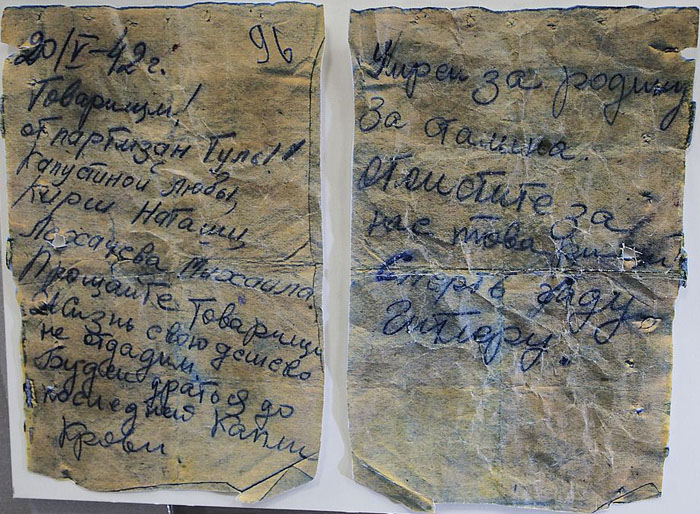 20/V-42 г.
96
Товарищи!
от партизан Тулы!
Капустиной Любы,
Кирш Наташи,
Лохачёва Михаила.
Прощайте Товарищи
Жизнь свою дешево
не отдадим.
Будем драться до
последней Капли
Крови.
Умрем за родину
За Сталина.
Отомстите за
нас товарищи
Смерть гаду
Гитлеру.